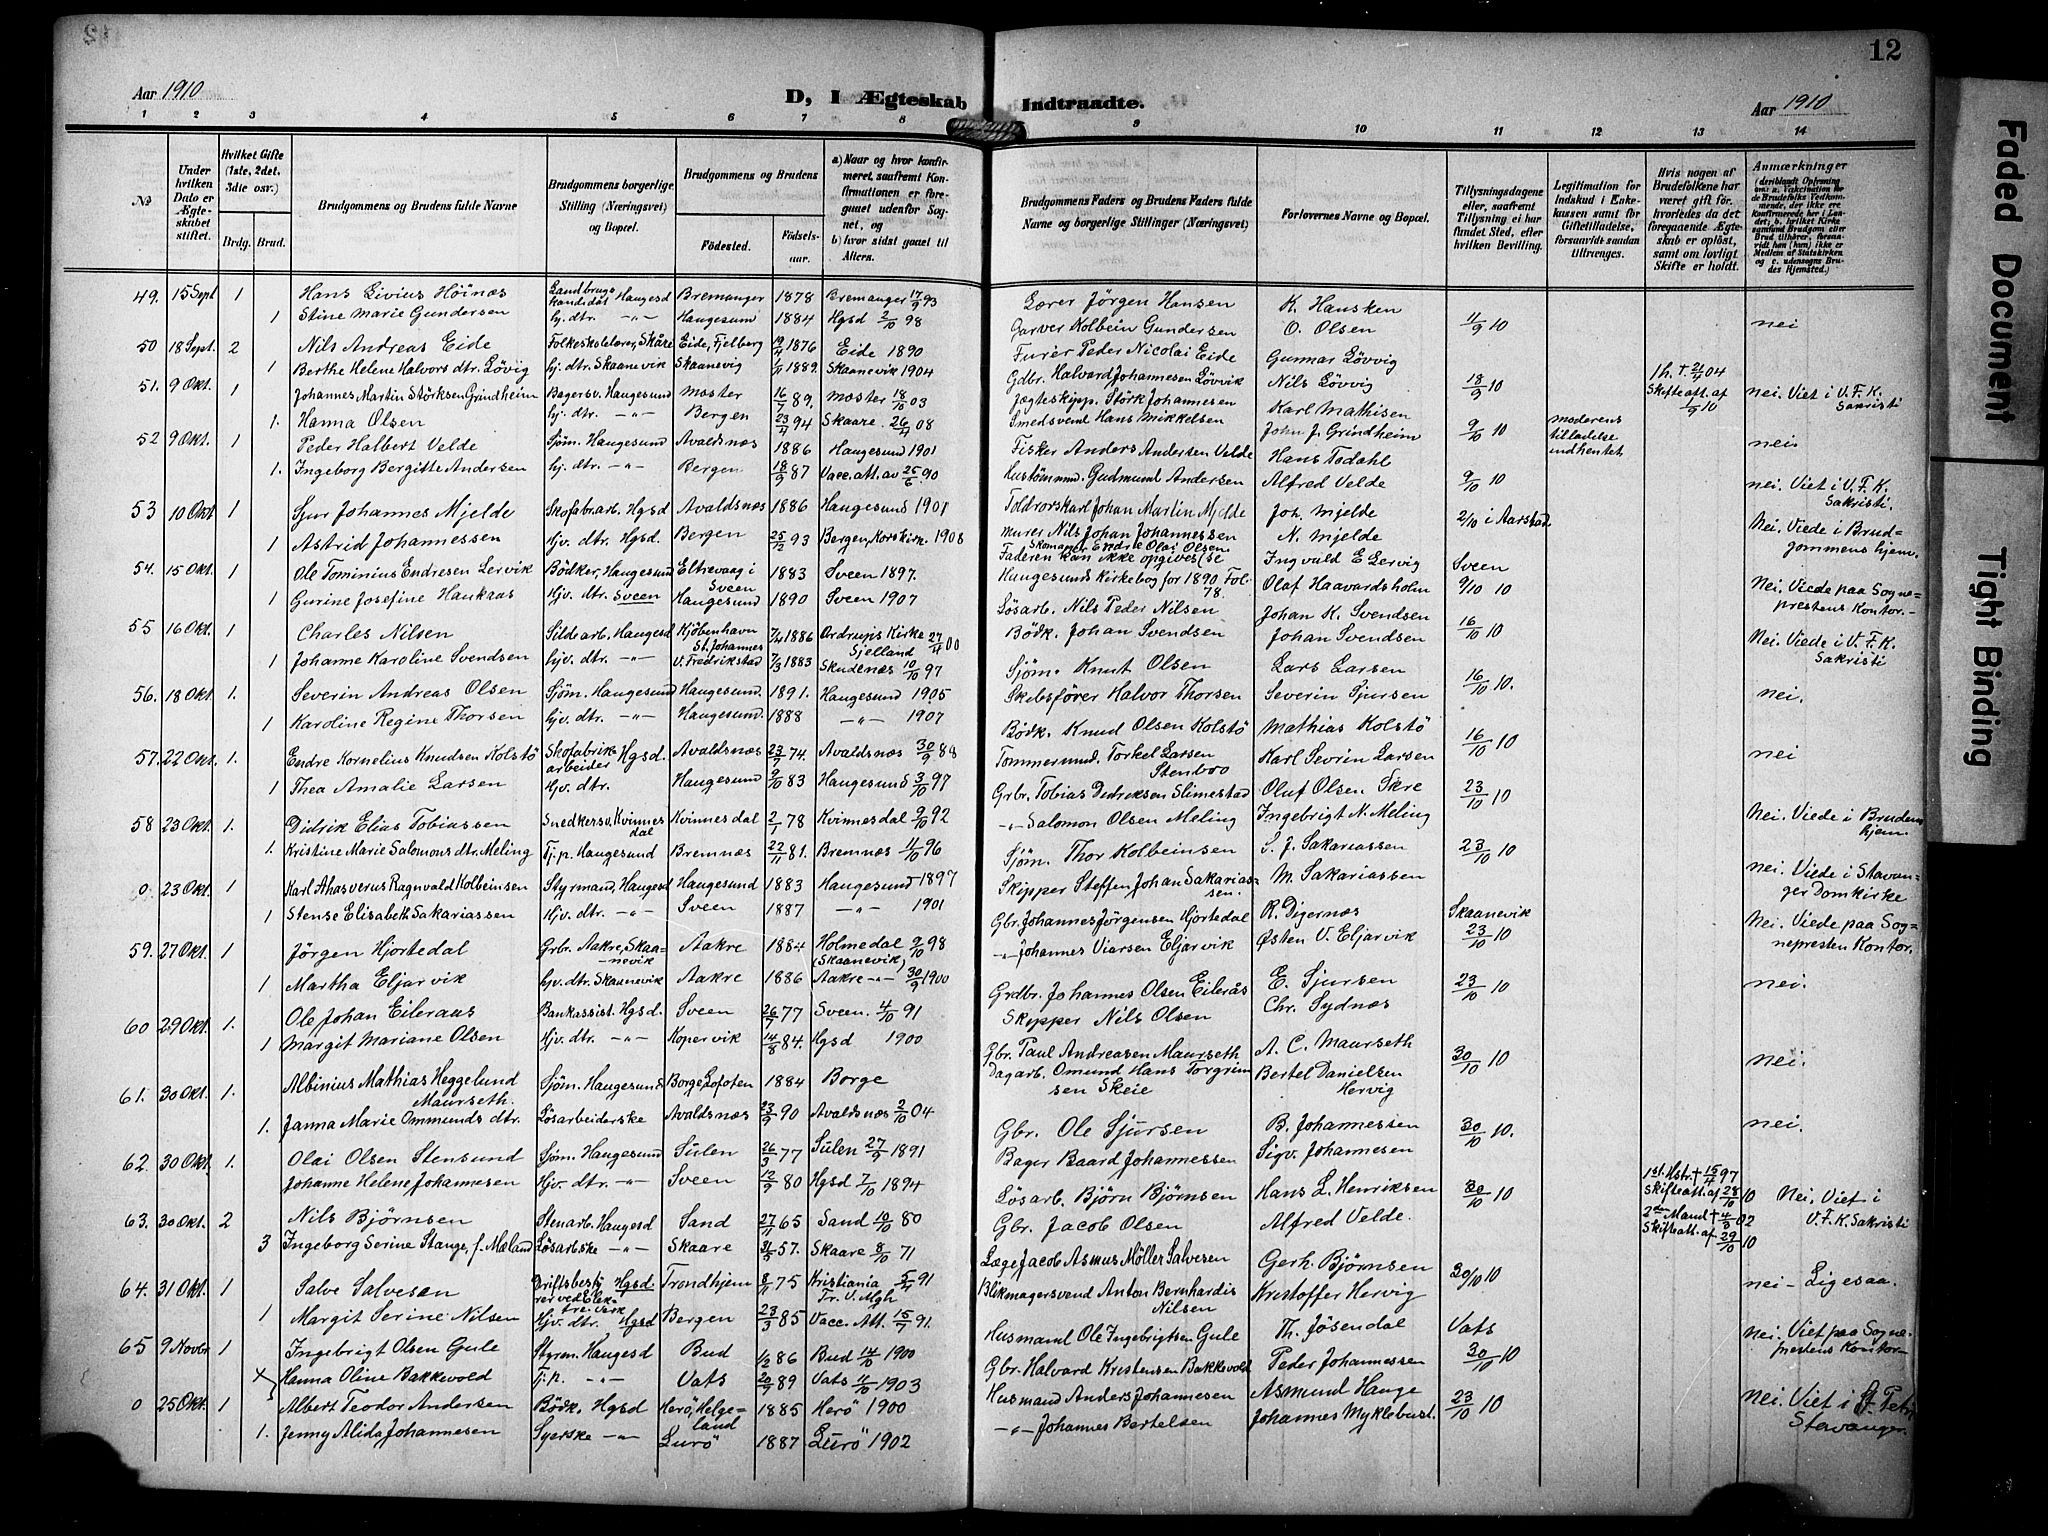 12
Aar 1910
D, I Ægteskab Indtraadte.
Aar 1910
1 2 3 4 5 6 7 8 9 10 11 12 13 14
No
Under hvilken Dato er Ægteskabet stiftet.
Hvilket Gifte (1ste, 2det, 3die osv.)
Brdg. Brud.
Brudgommens og Brudens fulde Navne
Brudgommens borgerlige Stilling (Næringsvei) og Bopæl.
Brudgommens og Brudens
Fødested.
Fødselsaar.
a) Naar og hvor konfirmeret, saafremt Konfirmationen er foregaaet udenfor Sognet, og
b) hvor sidst gaaet til Alters.
Brudgommens Faders og Brudens Faders fulde Navne og borgerlige Stillinger (Næringsvei)
Forlovernes Navne og Bopæl.
Tillysningsdagene eller, saafremt Tillysning ei har fundet Sted, efter hvilken Bevilling.
Legitimation for Indskud i Enkekassen samt for Giftetilladelse, forsaavidt saadan tiltrænges.
Hvis nogen af Brudefolkene har været gift før, hvorledes da det foregaaende Ægteskab er opløst, samt om lovligt Skifte er holdt.
Anmærkninger
49. 15 Sept 1 Hans Livius Höinæs Landbrugskandidat Haugesd Bremanger 1878 Bremanger 17/9 93 Lærer Jörgen Hansen K. Hansken
1 Stine Marie Gundersen hj. dtr. -"- Haugesund 1884 Hgsd 2/10 98 Garver Kolbein Gundersen O. Olsen 11/9 10 nei
50 18 Sept. 2 Nils Andreas Eide Folkeskolelærer, Skåre Eide, Fjelberg 19/4 1876 Eide 1890 Furér Peder Nicolai Eide Gunnar Lövvig
1 Berthe Helene Halvors dtr. Lövig hj. dtr. Skaanevik Skaanevig 1889 Skaanevik 1904 Gdbr. Halvard Johannesen Lövvik Nils Lövvig 18/9 10 1 h. + 21/4 04 Skifteatt. af 1/9 10 nei. Viet i V. F. K. Sakristi
51. 9 Okt. 1 Johannes Martin Störksen Grindheim Bagersv. Haugesund Moster 16/7 89. Moster 18/10 03 Jægteskipp. Störk Johannesen Karl Mathisen
1. Hanna Olsen hj. dtr. -"- Bergen 23/4 94 Skaare 26/4 08 Smedsvend Hans Mikkelsen John J. Grindheim 9/10 10 moderens tilladelse indhentet nei
52 9 Okt. 1 Peder Halbert Velde Sjöm. Haugesund Avaldsnæs 1886 Haugesund 1901 Fisker Anders Andersen Velde Hans Todahl
1. Ingeborg Bergitte Andersen hj. dtr. -"- Bergen 18/9 87 Vacc. att. av 25/6 90 Hustömmd. Gudmund Andersen Alfred Velde 9/10 10 nei. Viet i V. F. K. Sakristi.
53 10 Okt 1 Sjur Johannes Mjelde Skofabr. arb. Hgsd Avaldsnæs 1886 Haugesund 1901 Toldrorskarl Johan Martin Mjelde Joh. Mjelde 2/10 i Aarstad
1 Astrid Johannessen Hjv. dtr. Hgsd. Bergen 25/12 93 Bergen, Korskirk. 1908 Murer Nils Johan Johannessen N. Mjelde Nei. Viede i Brudgommens hjem.
54. 15 Okt. 1 Ole Tominius Endresen Lervik Bödker, Haugesund Eltrevaag i Sveen 1883 Sveen 1897. Skomager Endre Olai Olsen Ingvald E Lervig Sveen
1 Gurine Josefine Haukaas Hjv. dtr. Sveen Haugesund 1890 Sveen 1907 Faderen kan ikke opgives (se Haugesunds Kirkebog for 1890 Fol. 78. Olaf Haavardsholm 9/10 10 Nei. Viede paa Sogneprestens Kontor.-
55 16 Okt. 1 Charles Nilsen Sildearb. Haugesd Kjöbenhavn St. Johannes 7/4 1886 Ordrups Kirke Sjelland 27/4 00 Lösarb. Nils Peder Nilsen Johan K. Svendsen
1 Johanne Karoline Svendsen hjv. dtr. -"- V. Fredrikstad 7/3 1883 Skudenæs 10/10 97 Bödk. Johan Svendsen Johan Svendsen 16/10 10 Nei. Viede i V. F. K. Sakristi
56. 18 Okt 1. Severin Andreas Olsen Sjöm. Haugesund Haugesund. 1891. Haugesund 1905 Sjöm. Knut Olsen Lars Larsen
1 Karoline Regine Thorsen hjv. dtr. -"- Haugesund. 1888 -"- 1907 Skibsförer Halvor Thorsen Severin Tjursen 16/10 10. nei.
57. 22 Okt. 1. Endre Kornelius Knudsen Kolstö Skofabrikarbeider Hgsd. Avaldsnæs 23/7 74. Avaldsnæs 30/9 88 Bödk. Knud Olsen Kolstö Mathias Kolstö
1 Thea Amalie Larsen Hjv. dtr. Haugesund 9/10 83 Haugesund 3/10 97 Tommermd. Torkel Larsen Stenboo Karl Sevrin Larsen 16/10 10 nei
58 23 Okt. 1. Didrik Elias Tobiassen Snedkersv, Kvinnesdal Kvinnesdal 2/1 78 Kvinnesdal 9/10 92 Grbr. Tobias Didriksen Slimestad Oluf Olsen Skre
1. Kristine Marie Salomons dtr. Meling Tj. p. Haugesund Bremnæs 22/11 81. Bremnæs 11/10 96 -"- Salomon Olsen Meling Ingebrigt N. Meling 23/10 10 Nei. Viede i Brudens hjem.
0. 23 Okt. 1 Karl Ahasverus Ragnvald Kolbeinsen Styrmand, Haugesd Haugesund 1883 Haugesund 1897 Sjöm. Thor Kolbeinsen S. J. Sakariassen
1 Stense Elisabeth Sakariassen Hjv. dtr. -"- Sveen 1887 -"- 1901 Skipper Steffen Johan Sakariassen. M. Sakariassen 23/10 10 nei. Viede i Stavanger Domkirke
59. 27 Okt. 1 Jörgen Hjortedal Grbr. Aakre, Skaanevik Aakre 1884 Holmedal 9/10 98 (Skaanevik) Gbr. Johannes Jörgensen Hjortedal R. Digernæs Skaanevik
1 Martha Eljarvik hjv. dtr. Skaanevik Aakre 1886 Aakre -"- 30/9 1900 -"- Johannes Viarsen Eljarvik Østen V. Eljarvik 23/10 10 Nei. Viede paa Sognepresten Kontor.
60 29 Okt. 1. Ole Johan Eileraas Bankassist. Hgsd. Sveen 26/7 77 Sveen. 4/10 91 Grdbr. Johannes Olsen Eilerås E. Sjursen
1 Margit Mariane Olsen Hjv. dtr. -"- Kopervik 14/8 84. Hgsd 1900 Skipper Nils Olsen Chr. Sydnæs 23/10 10 nei.
61. 30 Okt. 1. Albinius Mathias Heggelund Maurseth. Sjöm. Haugesund Borge, Lofoten 1884 Borge Gbr. Paul Andreasen Maurseth A. C. Maurseth
1. Janna Marie Ommunds dtr. Lösarbeiderske Avaldsnæs 23/9 90 Avaldsnæs 2/10 04 Dagarb. Omund Hans Torgrimsen Skeie Bertel Danielsen Hervig 30/10 10 nei.
62. 30 Okt. 1. Olai Olsen Stensund Sjöm. Haugesund Sulen 26/3 77 Sulen 27/9 1891 Gbr. Ole Sjursen B. Johannessen
Johanne Helene Johannesen Hjv. dtr. -"- Sveen 12/9 80 Hgsd 7/10 1894 Bager Baard Johannessen Sigv. Johannesen 30/10 10. nei.
63. 30 Okt. 2 Nils Bjørnsen Stenarb. Haugesd Sand 27/11 65 Sand 10/10 80 Lösarb. Bjørn Bjørnsen Hans L. Henriksen 1st. Hstr. + 15/4 97 Skifteatt. af 28/10 10
3 Ingeborg Serine Stange, f. Mæland Lösarbske -"- Skaare 31/5 57. Skaare 8/10 71 Gbr. Jacob Olsen Alfred Velde. 30/10 10 2den Mand + 4/3 02 Skifteatt. af 29/10 10 Nei. Viet i V. F. K. Sakristi
64. 31 Okt. 1 Salve Salvesen Driftsbestyrer ved Elektre Verk Hgsd. Trondhjem 8/11 75 Kristiania Tr. V. Mgh 5/4 91 Læge Jacob Asmus Möller Salvesen Gerh. Bjørnsen
1 Margit Serine Nilsen Hjv. dtr. Hgsd Bergen 23/3 85 Vacc. Att. 15/7 91. Blikmagersvend Anton Bernhardis Nilsen Kristoffer Hervig 30/10 10 nei - Ligesaa.
65 9 Novbr 1 Ingebrigt Olsen Gule Styrm. Haugesd Bud 1/2 86 Bud 14/10 1900 Husmand Ole Ingebrigtsen Gule Th. Jösendal Vats
Hanna Oline Bakkevold Tj. p. -"- Vats 20/9 89 Vats 11/10 1903 Gbr. Halvard Kristensen Bakkevold Peder Johannessen 30/10 10 nei. Viet paa Sogneprestens Kontor-
0 25 Okt. 1 Albert Teodor Andersen Bödk. Hgsd Herö, Helgeland 1885 Herö 1900 Husmand Anders Johannesen Asmund Hauge
1. Jenny Alida Johannesen Syerske -"- Lurö 1887 Lurö 1902 -"- Johannes Bertelsen Johannes Myklebust. 23/10 10 nei. Viet i St. Petri Stavanger.
Faded Document
Tight Binding